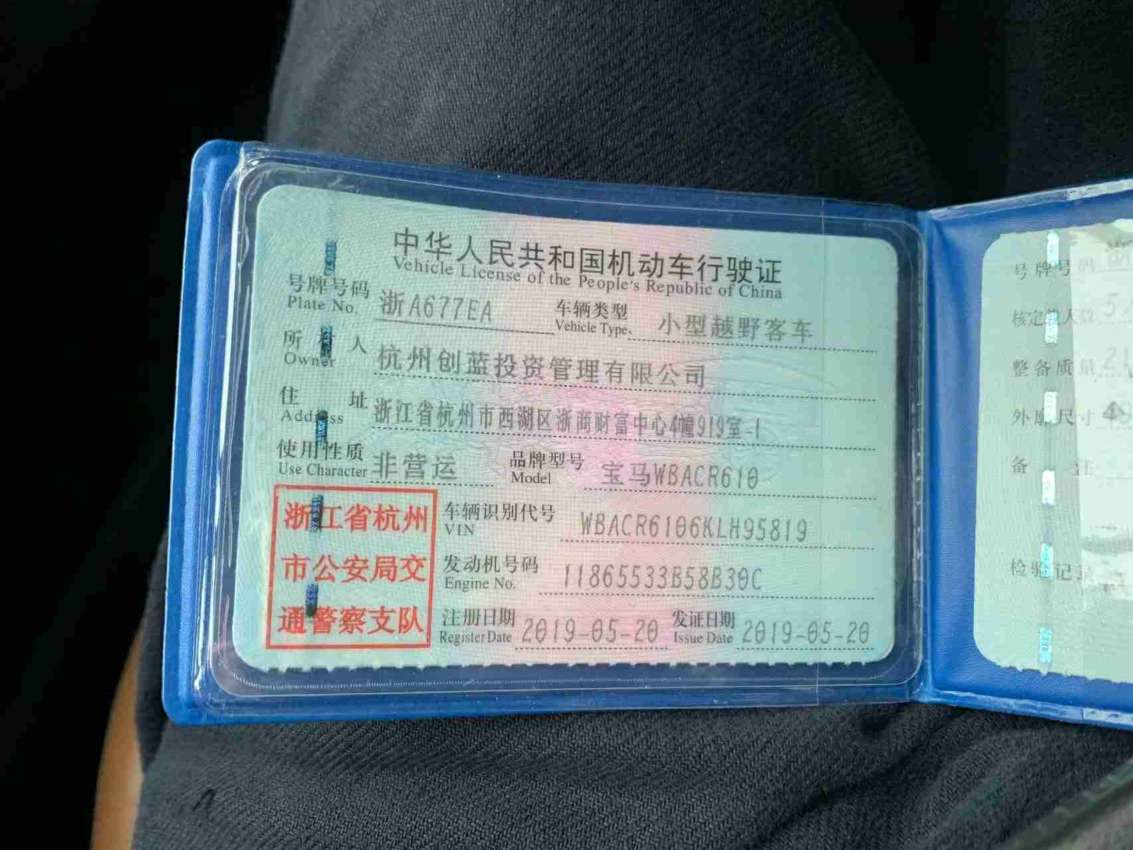 中华人民共和国机动车行驶证
Vehicle License of the People's Republic of China
号牌号码 浙A677EA 车辆类型 小型越野客车
Plate No. Vehicle Type
所有人 杭州创蓝投资管理有限公司
Owner
住址 浙江省杭州市西湖区浙商财富中心4幢919室-1
Address
使用性质 非营运 品牌型号 宝马WBACR610
Use Character Model
浙江省杭州
市公安局交
通警察支队
车辆识别代号 WBACR6106KLH95819
VIN
发动机号码 11865533B58B30C
Engine No.
注册日期 2019-05-20 发证日期 2019-05-20
Register Date Issue Date
号牌号码 浙
核定载人数 5
整备质量 21
外廓尺寸 4
备注
检验记录